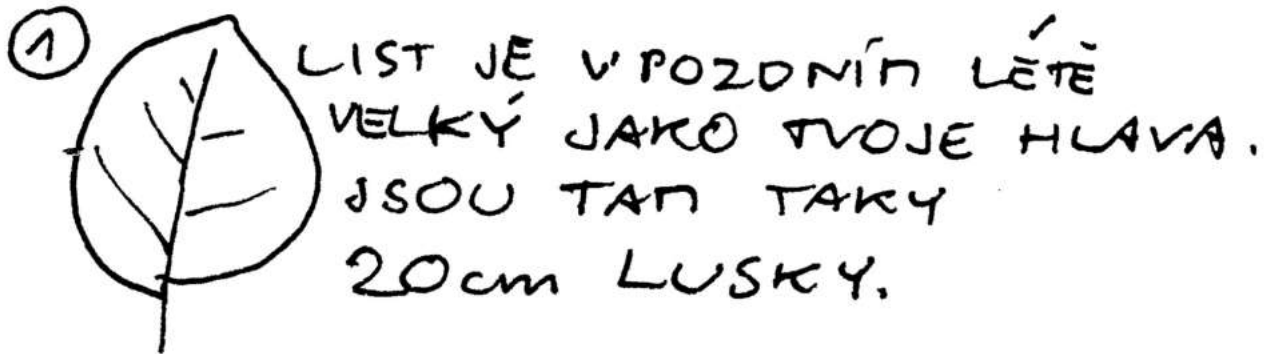 1
LIST JE V POZDNÍM LÉTĚ
VELKÝ JAKO TVOJE HLAVA.
JSOU TAM TAKY
20cm LUSKY.